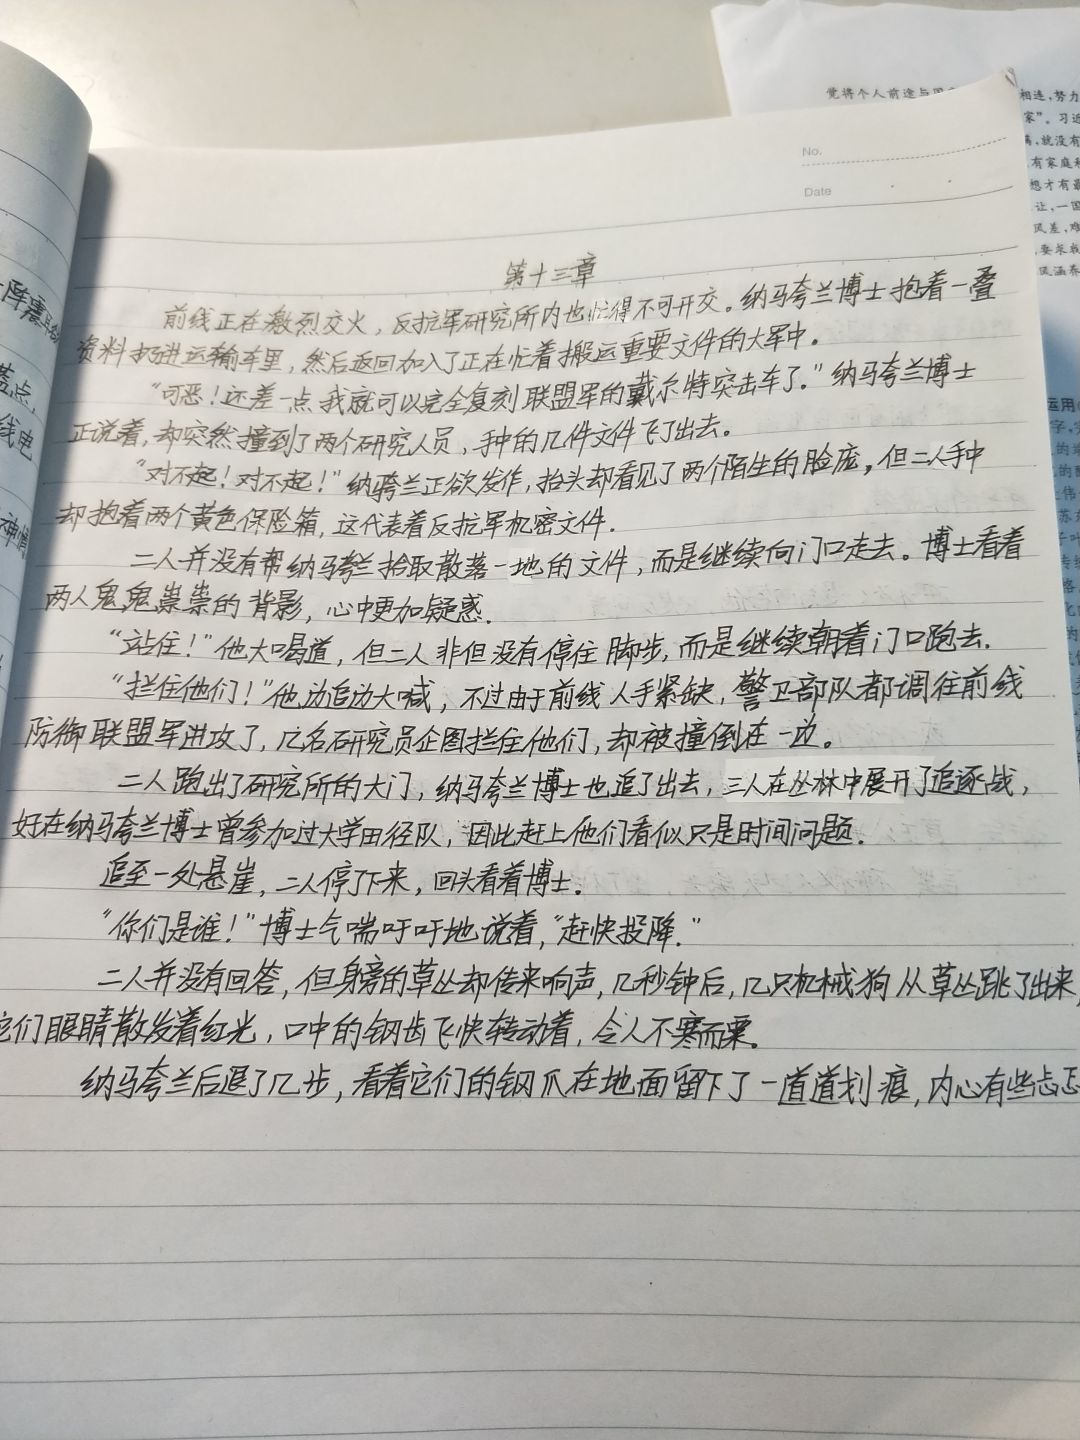 No.
Date
第十三章
前线正在激烈交火，反抗军研究所内也忙得不可开交。纳马夸兰博士抱着一叠
资料扔进运输车里，然后返回加入了正在忙着搬运重要文件的大军中。
“可恶！还差一点我就可以完全复刻联盟军的戴尔特突击车了。”纳马夸兰博士
正说着，却突然撞到了两个研究人员，手中的几件文件飞了出去。
“对不起！对不起！”纳马夸兰正欲发作，抬头却看见了两个陌生的脸庞，但二人手中
却抱着两个黄色保险箱，这代表着反抗军机密文件.
二人并没有帮纳马夸兰拾取散落一地的文件，而是继续向门口走去。博士看着
两人鬼鬼祟祟的背影，心中更加疑惑.
“站住！”他大喝道，但二人非但没有停住脚步，而是继续朝着门口跑去.
“拦住他们！”他边追边大喊，不过由于前线人手紧缺，警卫部队都调往前线
防御联盟军进攻了，几名研究员企图拦住他们，却被撞倒在一边。
二人跑出了研究所的大门，纳马夸兰博士也追了出去，三人在丛林中展开了追逐战，
好在纳马夸兰博士曾参加过大学田径队，因此赶上他们看似只是时间问题.
追至一处悬崖，二人停了下来，回头看着博士.
“你们是谁！”博士气喘吁吁地说着，“赶快投降.”
二人并没有回答，但身旁的草丛却传来响声，几秒钟后，几只机械狗从草丛跳了出来，
它们眼睛散发着红光，口中的钢齿飞快转动着，令人不寒而栗.
纳马夸兰后退了几步，看着它们的钢爪在地面留下了一道道划痕，内心有些忐忑
觉将个人前途与
相连，努力
家”。习近
就没有
有家庭
想才有最
让，一国
风差，难
要求我
风涵养
运用
阵震
线电
神情